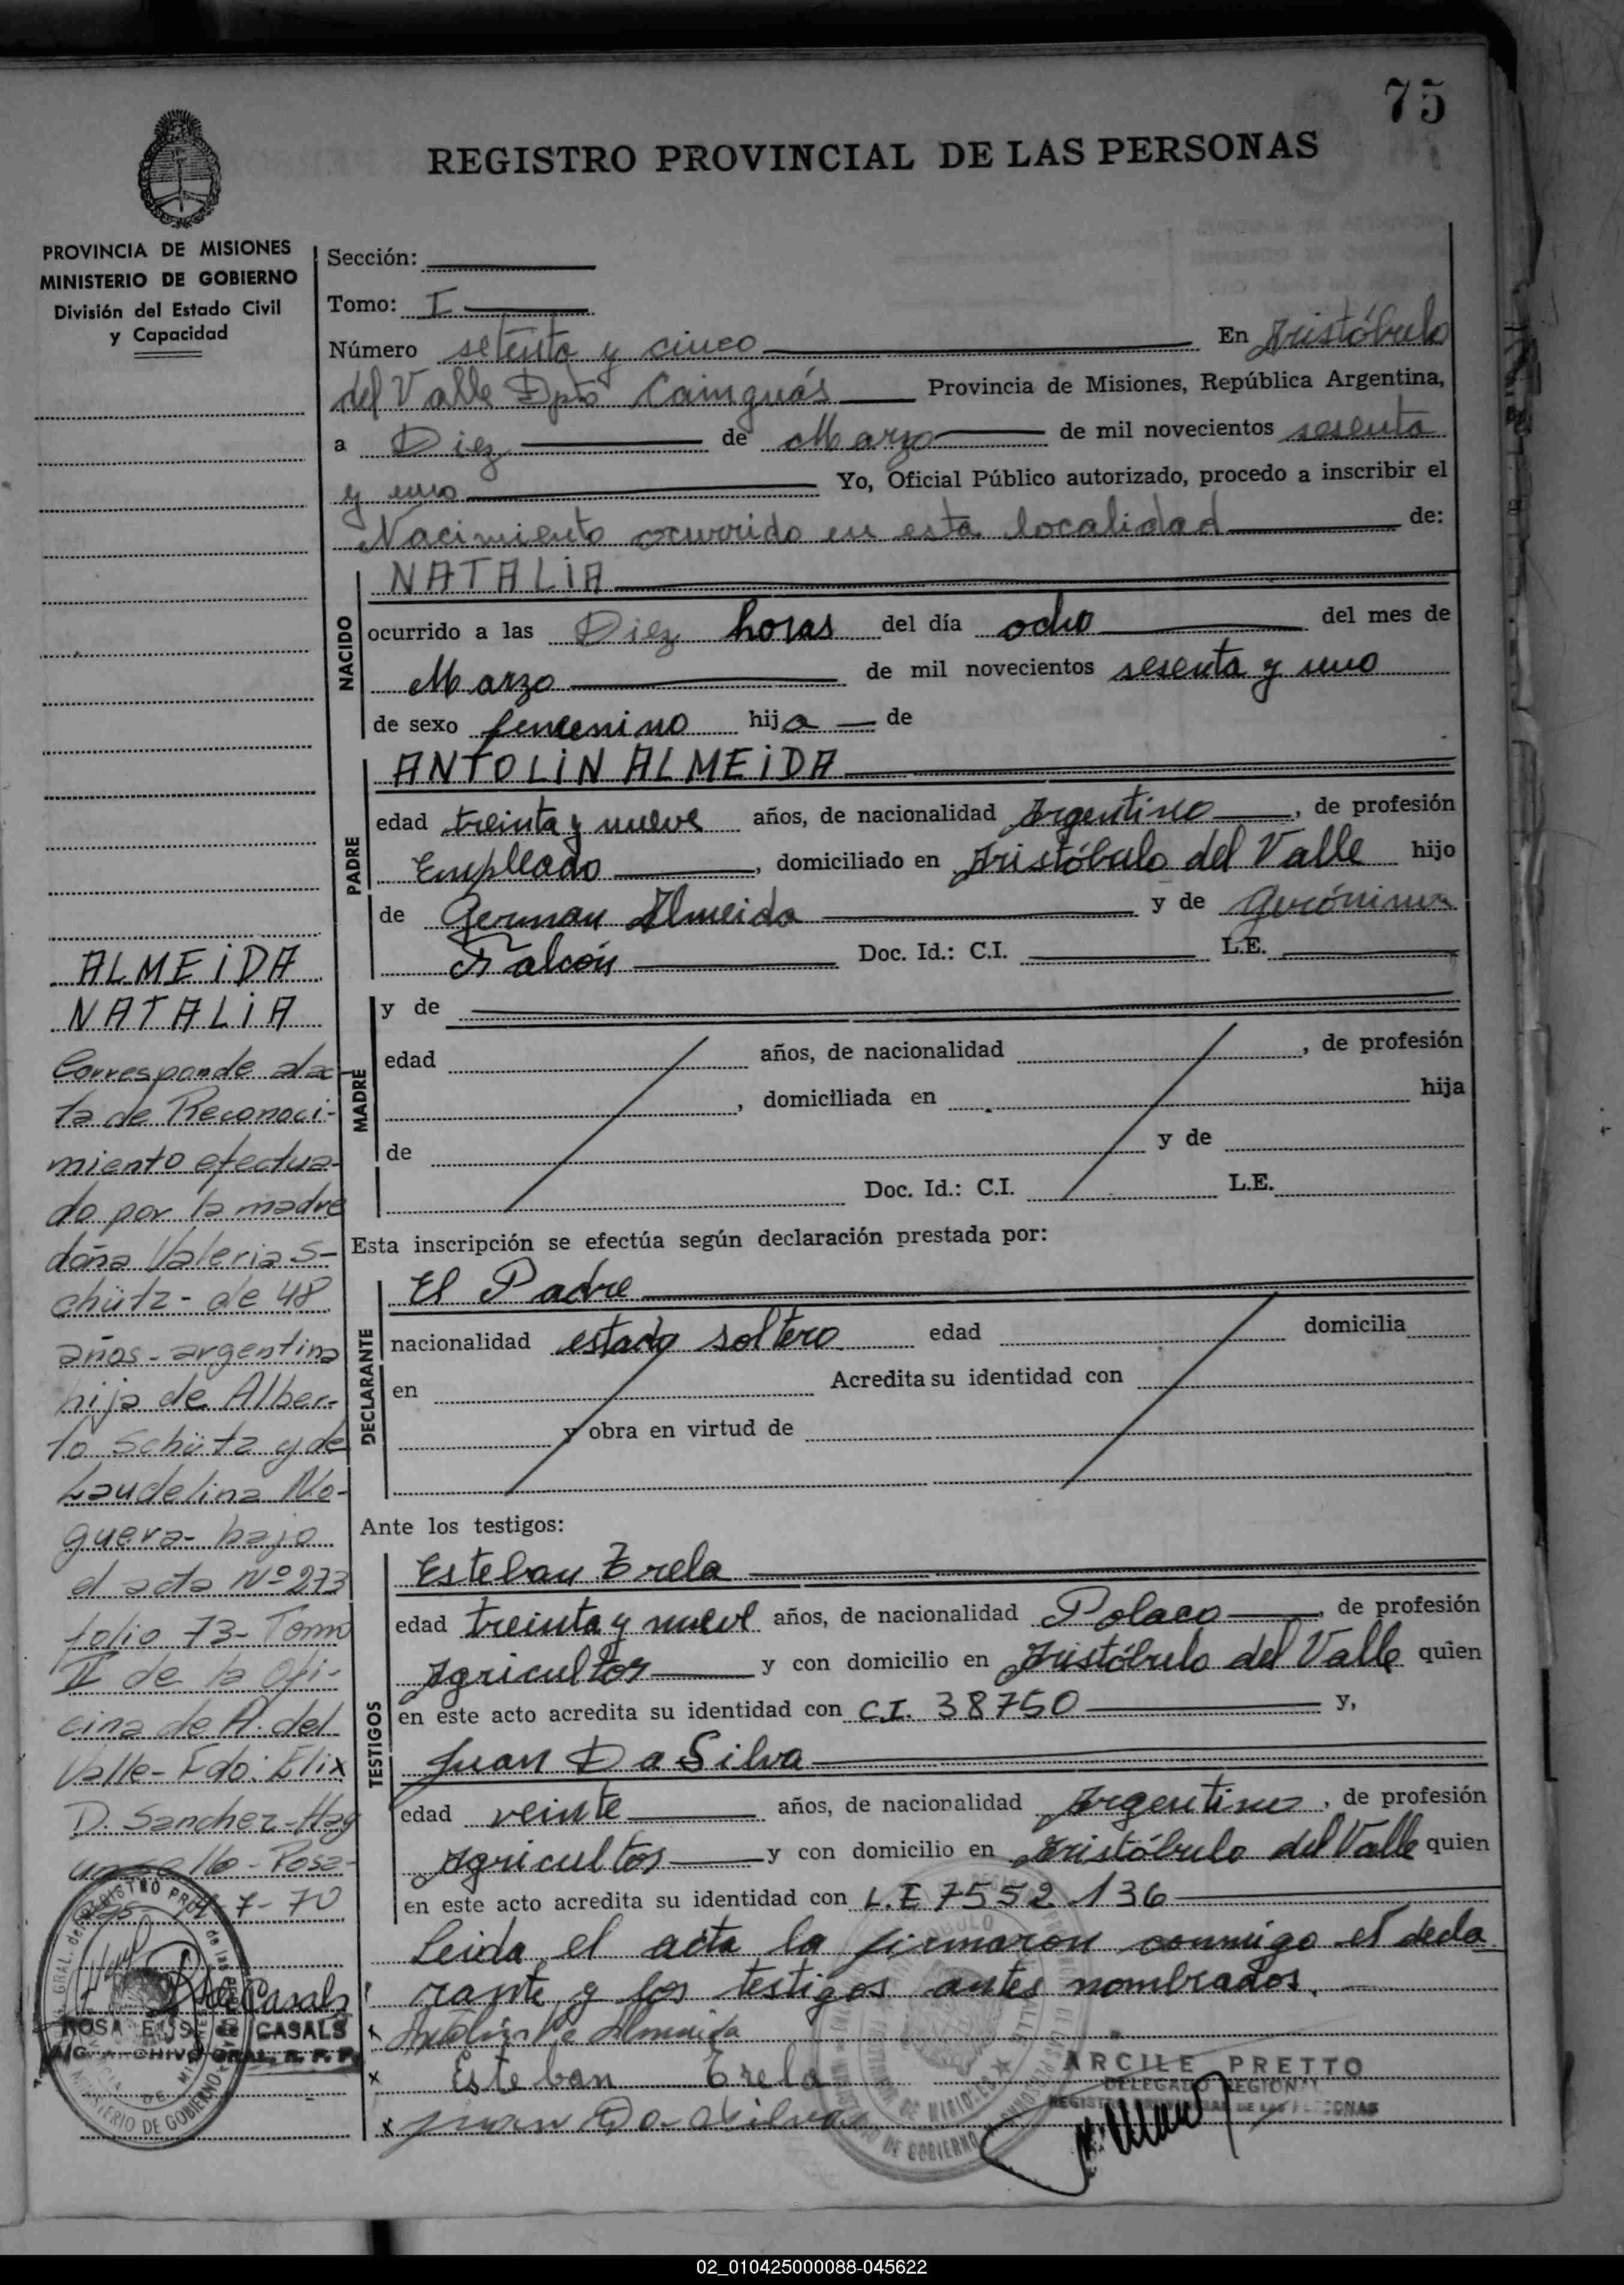 75
REGISTRO PROVINCIAL DE LAS PERSONAS
PROVINCIA DE MISIONES
MINISTERIO DE GOBIERNO
División del Estado Civil
y Capacidad
Sección:
Tomo: I
Número setenta y cinco En Aristóbulo
del Valle Dpto Cainguás Provincia de Misiones, República Argentina,
a Diez de Marzo de mil novecientos sesenta
y uno Yo, Oficial Público autorizado, procedo a inscribir el
Nacimiento ocurrido en esta localidad de:
NACIDO
NATALIA
ocurrido a las Diez horas del día ocho del mes de
Marzo de mil novecientos sesenta y uno
de sexo femenino hija de
PADRE
ANTOLIN ALMEIDA
edad treinta y nueve años, de nacionalidad Argentino, de profesión
Empleado, domiciliado en Aristóbulo del Valle hijo
de German Almeida y de Gerónima
Falcón Doc. Id.: C.I. L.E.
MADRE
y de
edad años, de nacionalidad , de profesión
, domiciliada en hija
de y de
Doc. Id.: C.I. L.E.
Esta inscripción se efectúa según declaración prestada por:
DECLARANTE
El Padre
nacionalidad estado soltero edad domicilia
en Acredita su identidad con
y obra en virtud de
Ante los testigos:
TESTIGOS
Esteban Trela
edad treinta y nueve años, de nacionalidad Polaco, de profesión
Agricultor y con domicilio en Aristóbulo del Valle quien
en este acto acredita su identidad con C.I. 38750 y,
Juan Da Silva
edad veinte años, de nacionalidad Argentino, de profesión
Agricultor y con domicilio en Aristóbulo del Valle quien
en este acto acredita su identidad con L.E 7552.136
Leida el acta la firmaron conmigo el decla
rante y los testigos antes nombrados.
x Almeida
x Esteban Trela
x Juan Da Silva
ARCILE PRETTO
DELEGADO REGIONAL
REGISTRO PROVINCIAL DE LAS PERSONAS
ALMEIDA
NATALIA
Corresponde al ac
ta de Reconoci-
miento efectua-
do por la madre
doña Valeria S-
chütz - de 48
años - argentina
hija de Alber-
to Schütz y de
Laudelina No-
guera - bajo
el acta Nº 273
folio 73 - Tomo
II de la Ofi-
cina de A. del
Valle - Fdo: Elix
D. Sanchez - Hay
un sello - Posa-
7-70
de Casals
ROSA E. S. de CASALS
A/C. ARCHIVO GRAL. R. P. P.
MINISTERIO DE GOBIERNO
02_010425000088-045622